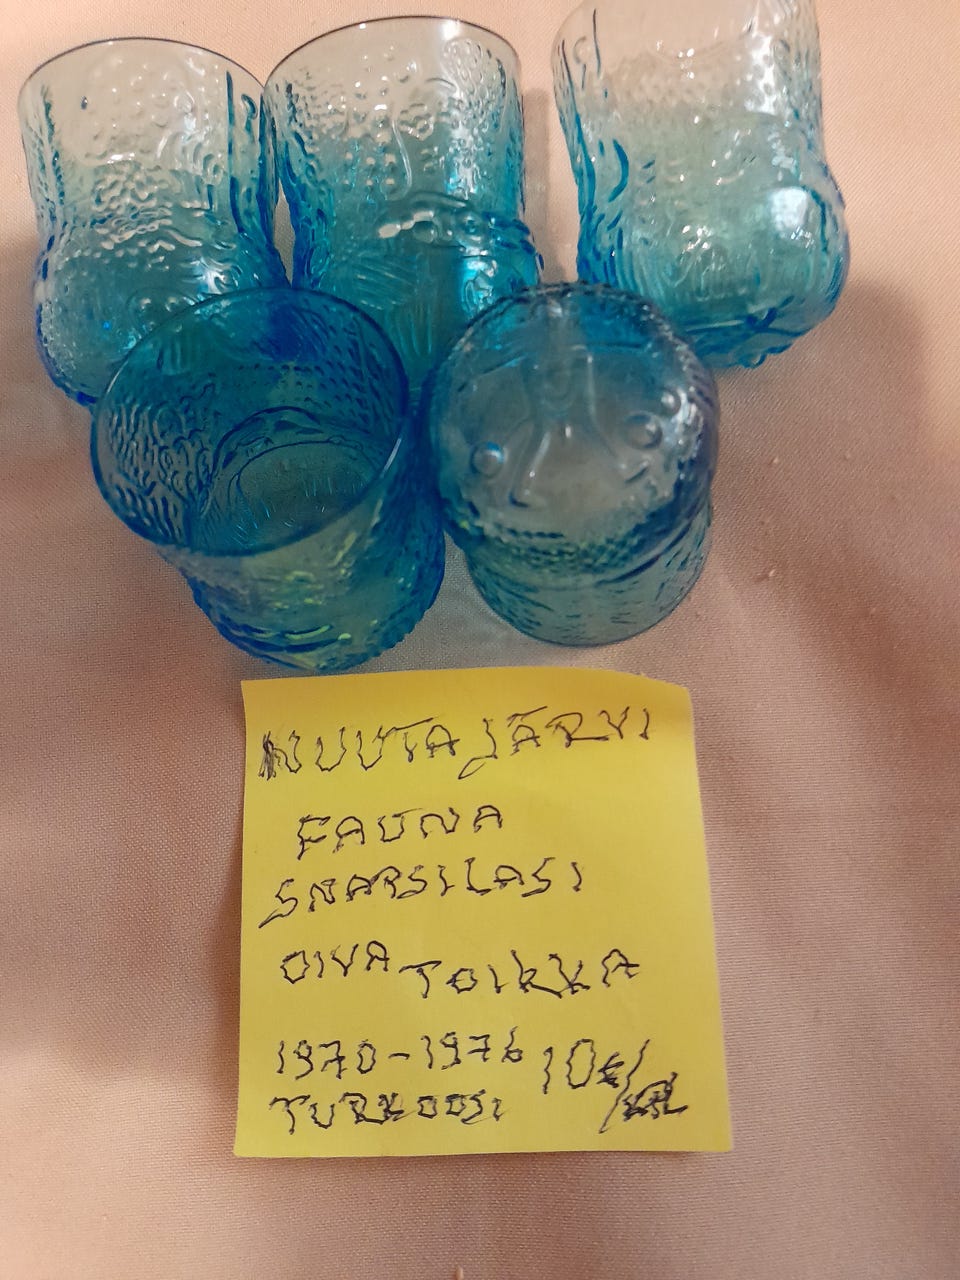 NUUTAJÄRVI
FAUNA
SNAPSILASI
OIVA TOIKKA
1970-1976 10€/KPL
TURKOOSI